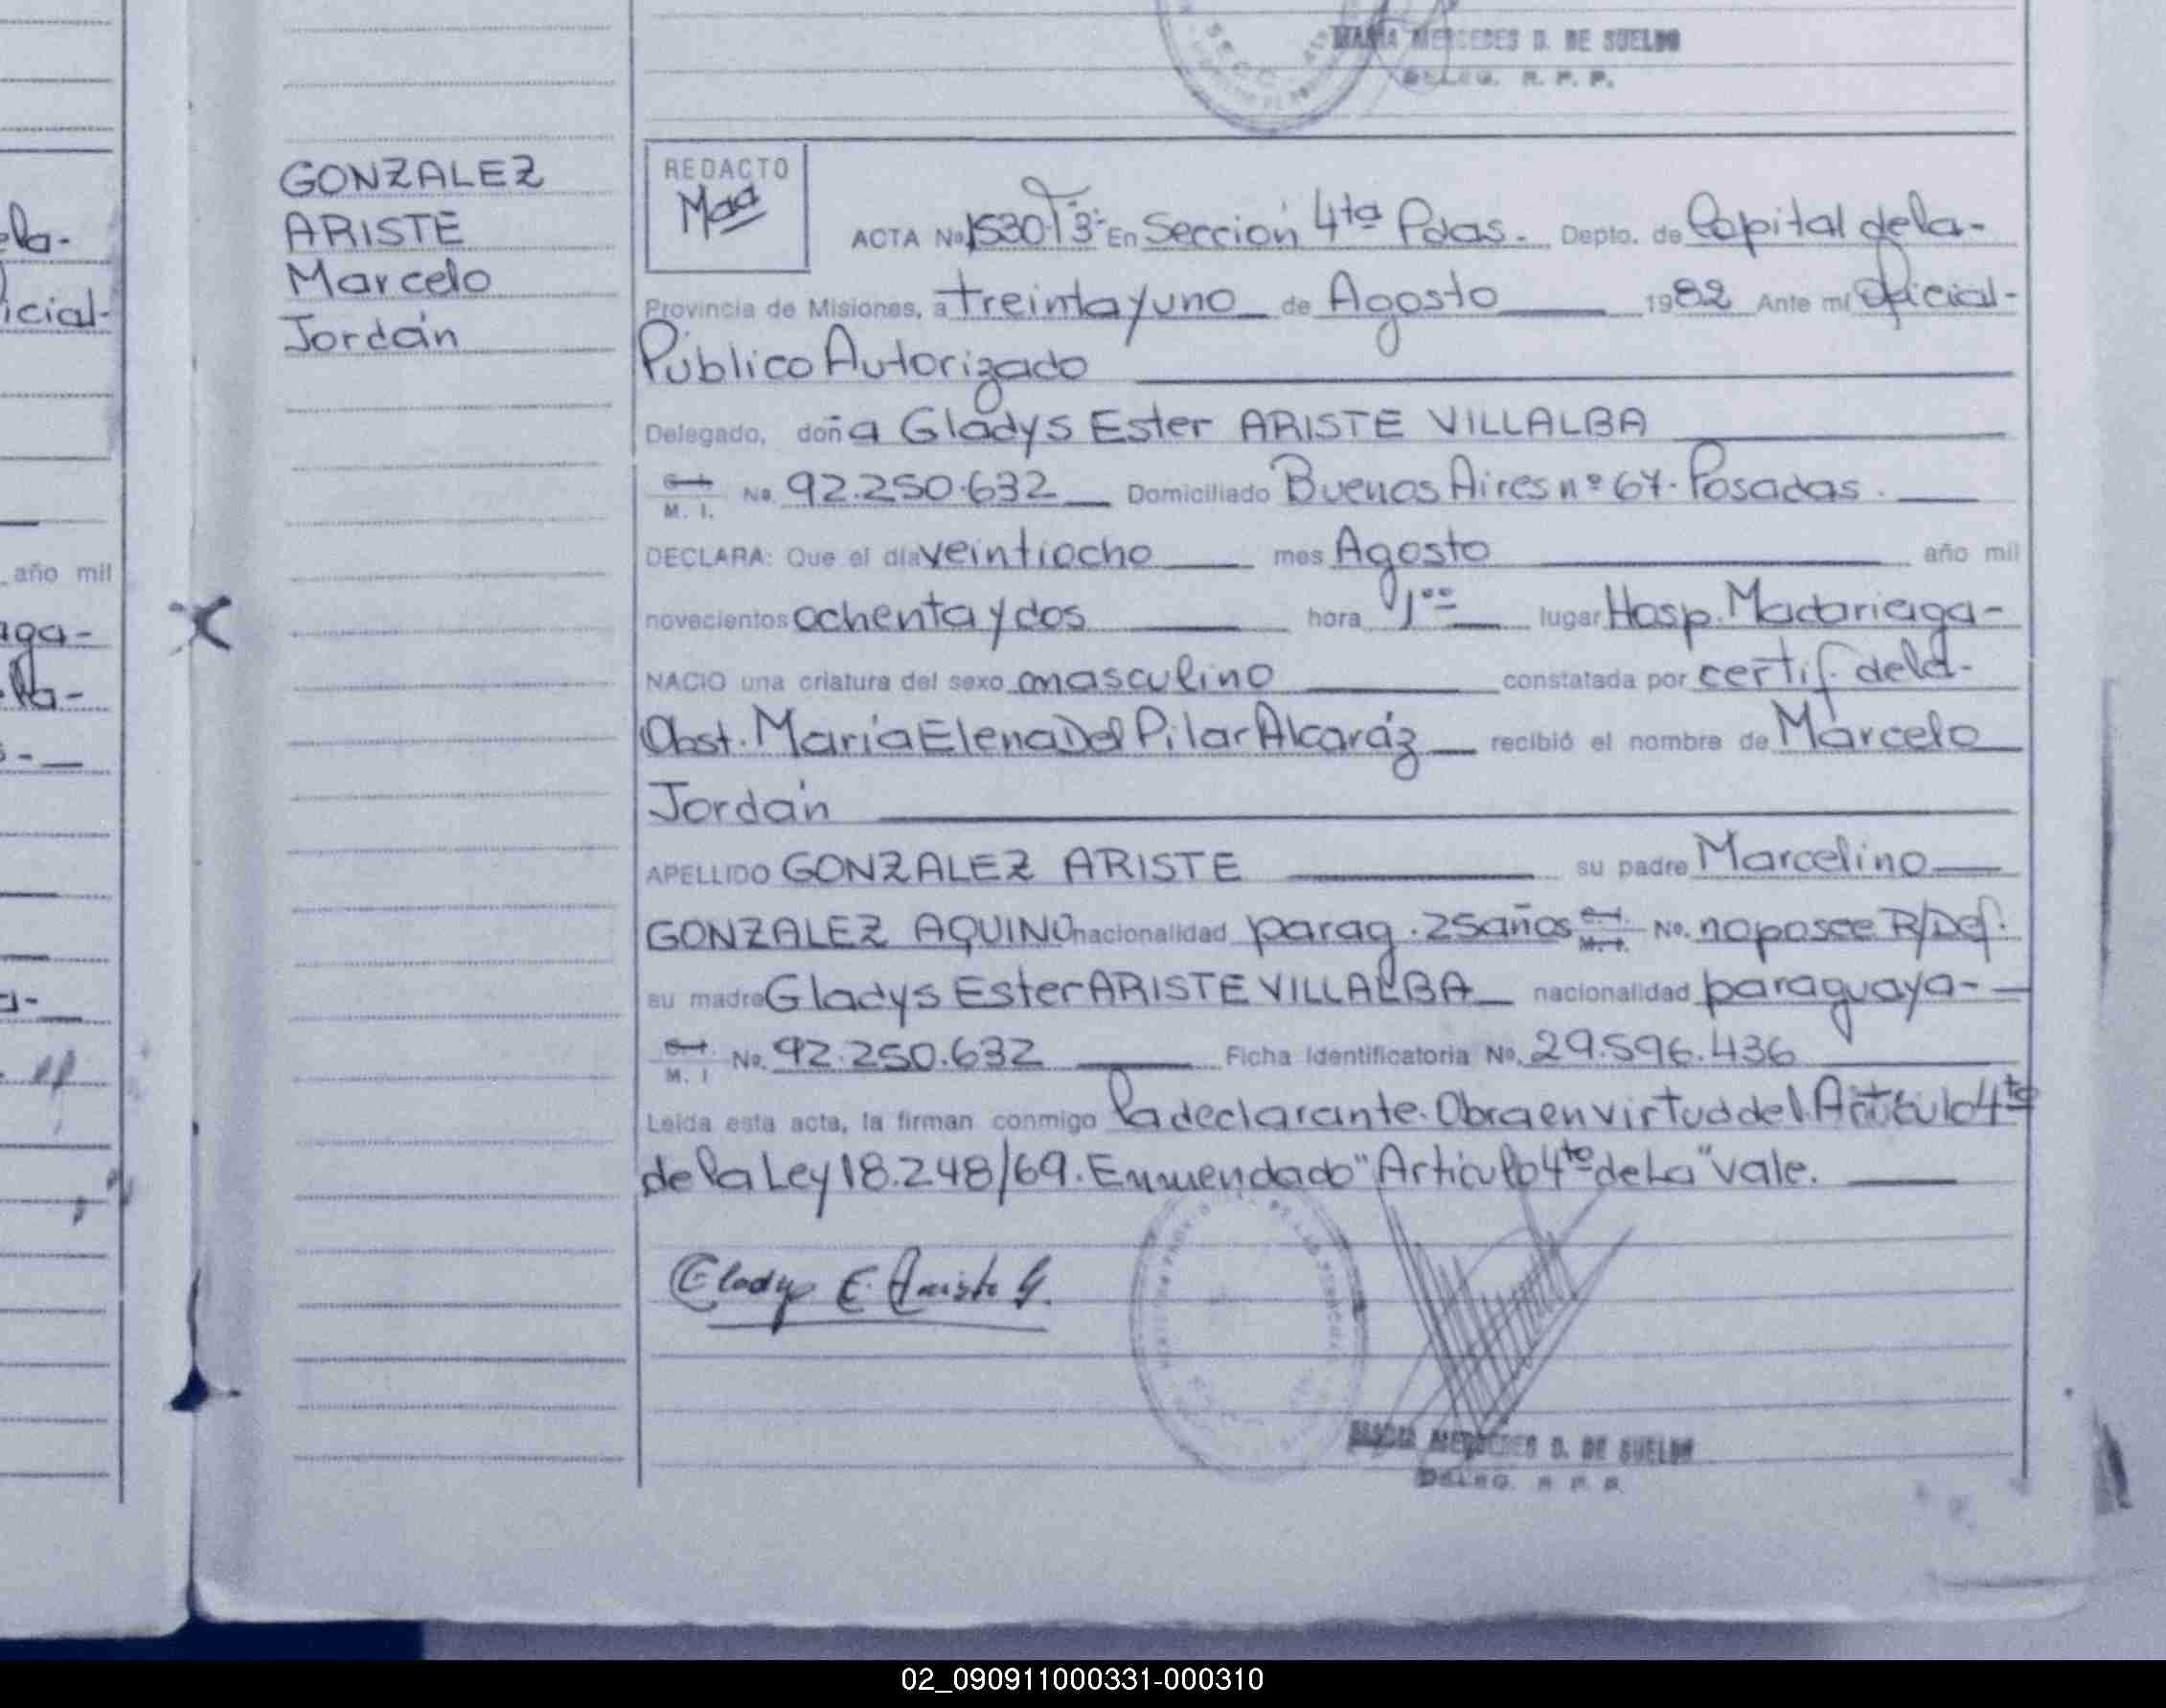 MARIA MERCEDES D. DE SUELDO
DELEG. R. P. P.
GONZALEZ
ARISTE
Marcelo
Jordán
REDACTO
ACTA No 1530 T 3- En Sección 4ta Pdas. Depto. de Capital de la-
Provincia de Misiones, a treinta y uno de Agosto 1982 Ante mí Oficial-
Público Autorizado
Delegado, doña Gladys Ester ARISTE VILLALBA
M. I. No. 92.250.632 Domiciliado Buenos Aires nº 67. Posadas.
DECLARA: Que el día veintiocho mes Agosto año mil
novecientos ochenta y dos hora 1 lugar Hosp. Madariaga-
NACIO una criatura del sexo masculino constatada por certif. de la-
Obst. María Elena Del Pilar Alcaráz recibió el nombre de Marcelo
Jordán
APELLIDO GONZALEZ ARISTE su padre Marcelino
GONZALEZ AQUINO nacionalidad parag. 25 años M. I. No. no posee R/Def.
su madre Gladys Ester ARISTE VILLALBA nacionalidad paraguaya-
M. I No. 92.250.632 Ficha Identificatoria No. 29.596.436
Leída esta acta, la firman conmigo la declarante. Obra en virtud del Artículo 4to
de la Ley 18.248/69. Enmendado "Artículo 4to de La" vale.
Gladys E. Ariste
MARIA MERCEDES D. DE SUELDO
DELEG. R. P. P.
ela-
icial-
año mil
aga-
la-
02_090911000331-000310